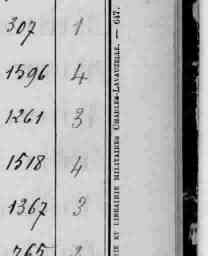 307 1
1596 4
1261 3
1518 4
1367 3
765
IE ET LIBRAIRIE MILITAIRES CHARLES-LAVAUZELLE. — 647.